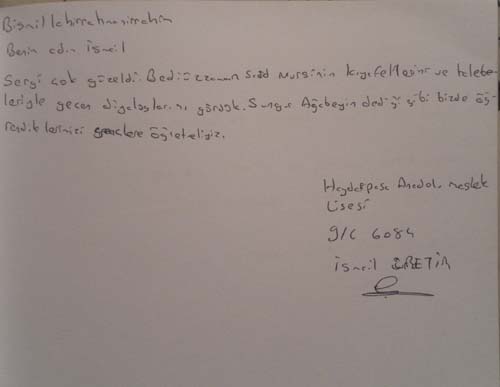 Bismillahirrahmanirrahim
Benim adım İsmail
Sergi çok güzeldi. Bediüzzaman Said Nursinin kıyafetlerini ve talebe-
leriyle geçen diyaloglarını gördük. Sungur Ağabeyin dediği gibi bizde öğ-
rendiklerimizi gençlere öğretmeliyiz.
Haydarpaşa Anadolu meslek
Lisesi
9/C 6084
İsmail